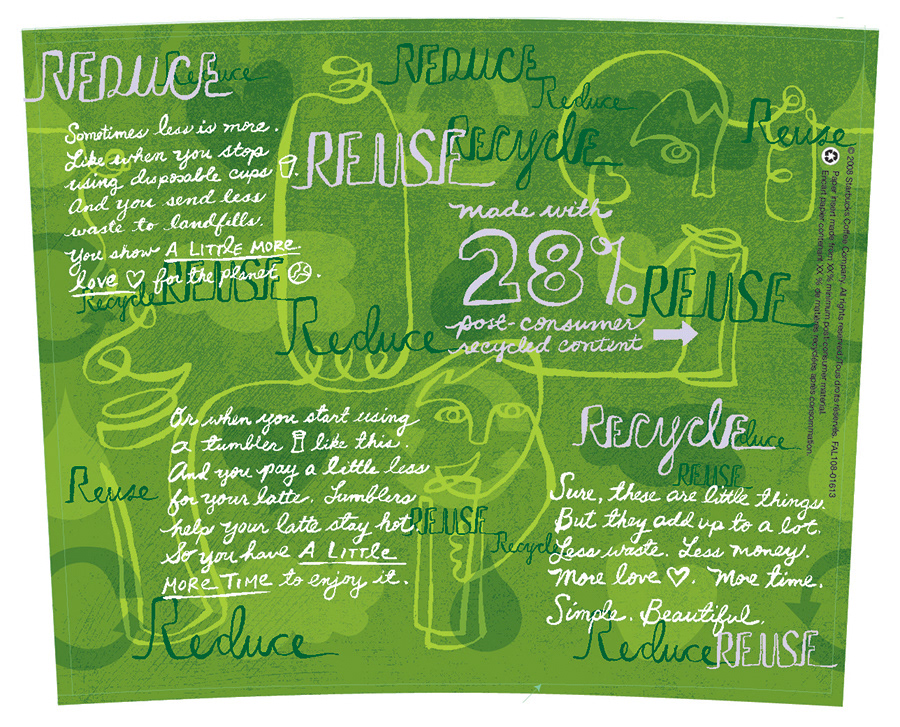 REDUCE
Reduce
REDUCE
Reduce
Reuse
Sometimes less is more.
Like when you stop
using disposable cups.
And you send less
waste to landfills.
You show A LITTLE MORE
love ♡ for the planet.
REUSE
Recycle
made with
28%
post-consumer
recycled content
REUSE
Recycle
REUSE
Reduce
© 2008 Starbucks Coffee Company. All rights reserved./Tous droits réservés. FAL108-01613
Paper insert made from XX% minimum post-consumer material.
Encart papier contenant XX % de matières recyclées après consommation.
Or when you start using
a tumbler like this.
And you pay a little less
for your latte. Tumblers
help your latte stay hot.
So you have A LITTLE
MORE TIME to enjoy it.
Reuse
REUSE
Recycle
Reduce
Recycle
Reduce
REUSE
Sure, these are little things.
But they add up to a lot.
Less waste. Less money.
More love ♡. More time.
Simple. Beautiful.
Reduce
REUSE